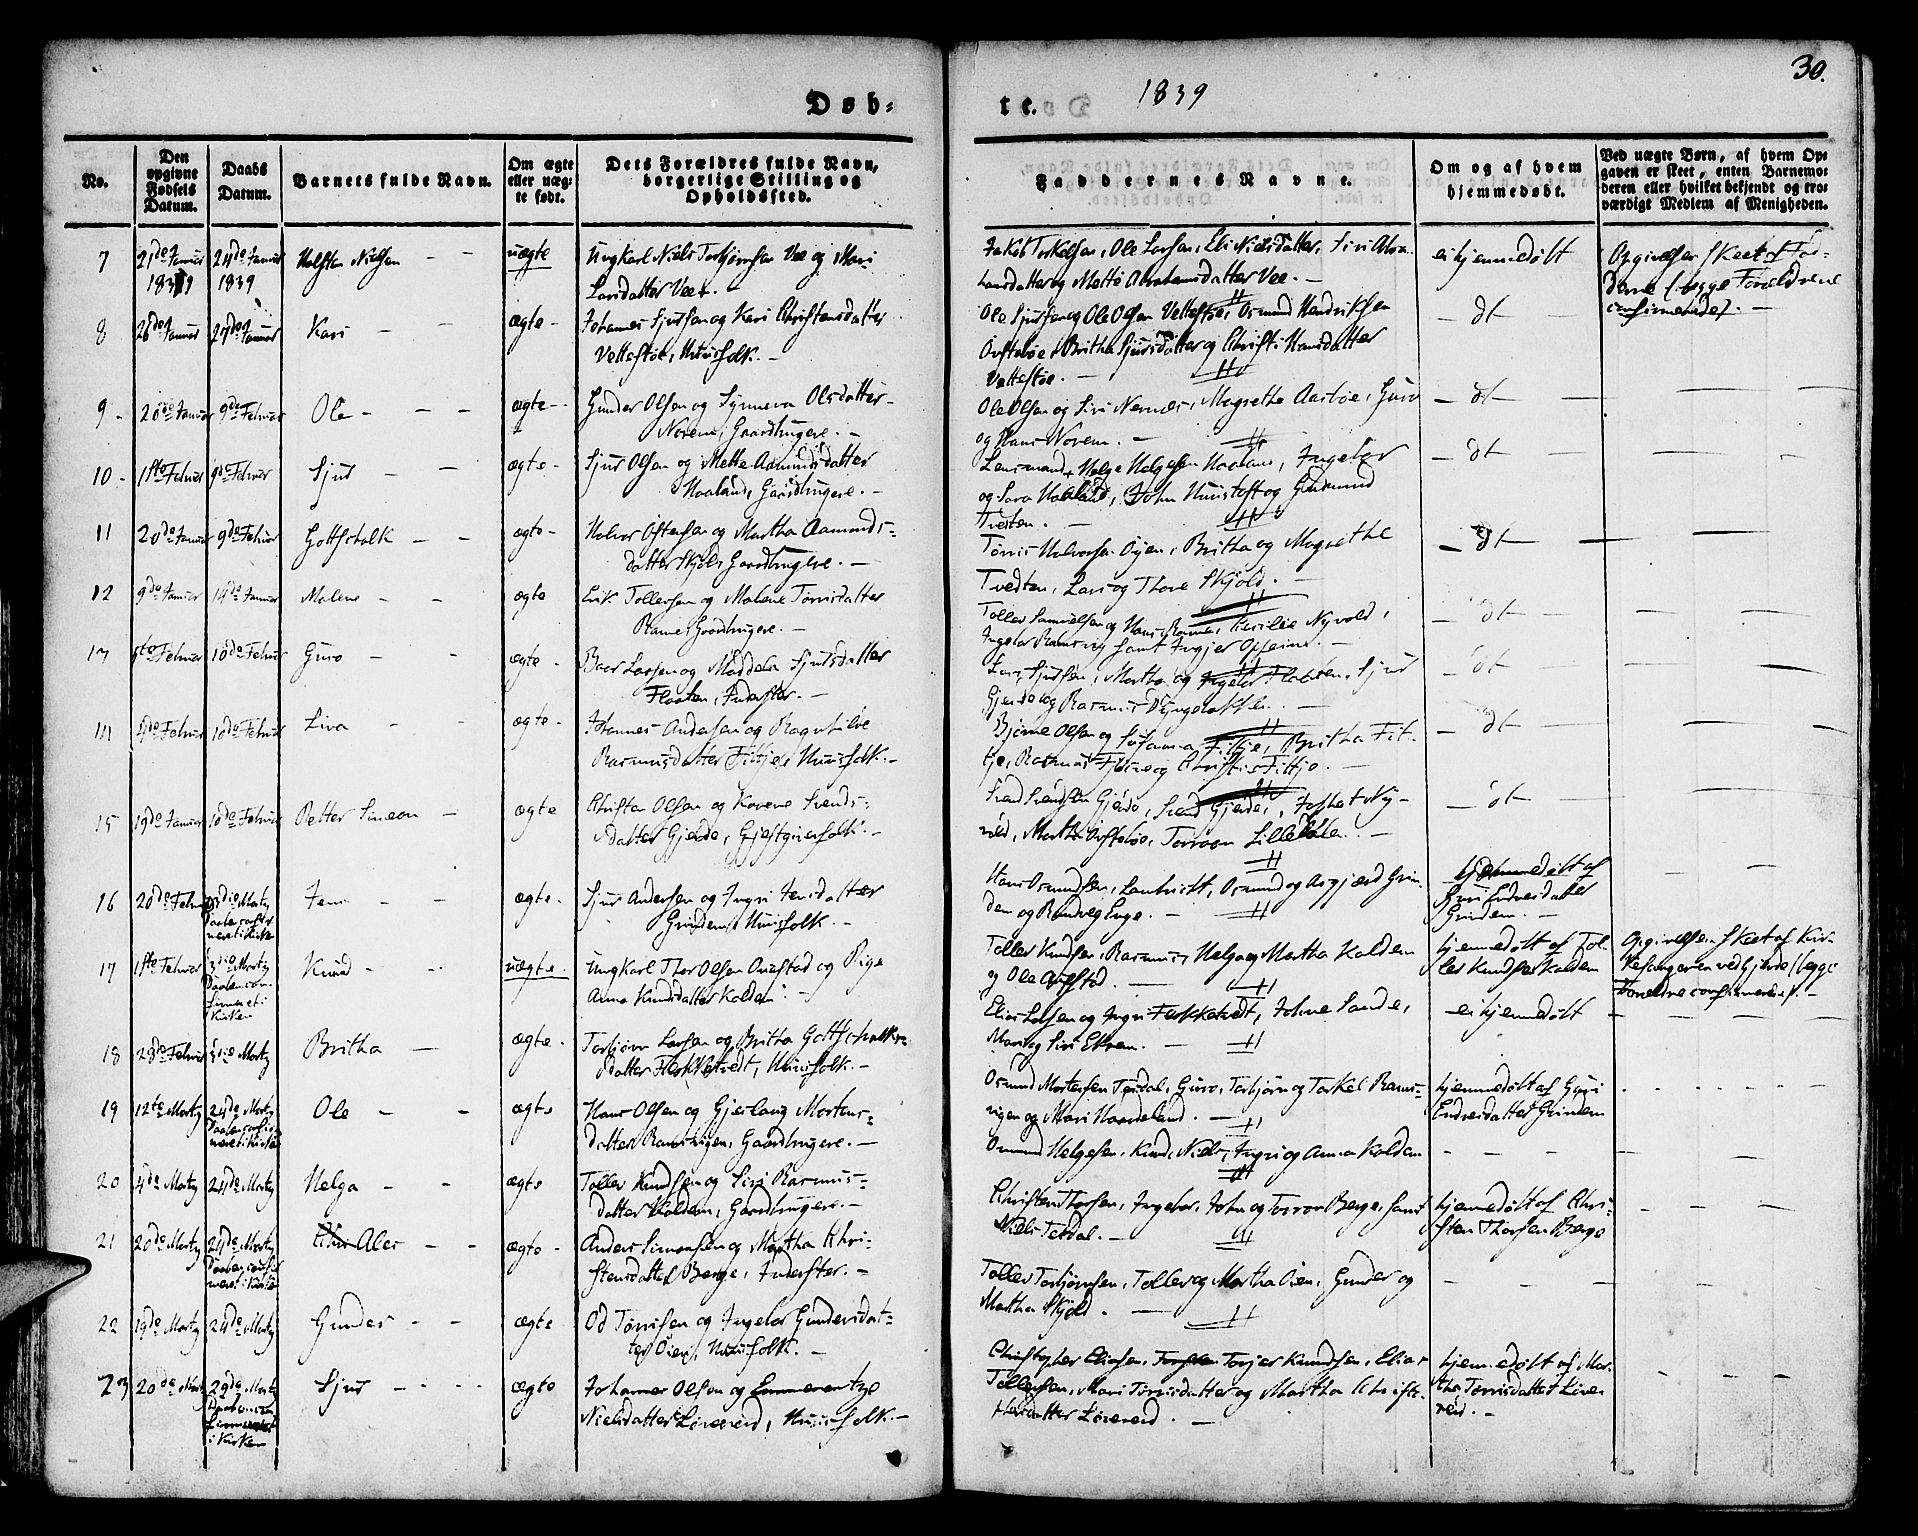 30.
Døb-
te.
1839
No.
Den opgivne Fødsels Datum.
Daabs Datum.
Barnets fulde Navn.
Om ægte eller uægte født.
Dets Forældres fulde Navn, borgerlige Stilling og Opholdssted.
Faddernes Navne.
Om og af hvem hjemmedøbt.
Ved uægte Børn, af hvem Opgaven er skeet, enten Barnemoderen eller hvilket bekjendt og troværdigt Medlem af Menigheden.
7 21de Januar 1839 24de Januar 1839 Nielsen uægte Ungkarl Niels Torbjørnsen Vee og Mari
Larsdatter Vee.
Jakob Torkelsen, Ole Larsen, Eli Nielsdatter, Siri Abra-
hamsdatter og Mette Abrahamsdatter Vee.
ei hjemmedøbt
Opgivelsen skeet af Fa-
deren (begge Forældrene
confirmerede).
8 26de Januar 27de Januar Kari ægte Johannes Sjursen og Kari Christensdatter
Vettestøe, Huusfolk.
Ole Sjursen og Ole Olsen Vettestøe, Osmund Hendriksen
Britha Sjursdatter og Christi Hansdatter
Vettestøe.
dt
9 20de Januar 9de Februar Ole ægte Gunder Olsen og Synneva Olsdatter
Norem, Gaardbrugere.
Ole Olsen og Siri Nernes, Magrethe Aarbøe, Guro
og Hans Norem.
dt
10 1ste Februar 9de Februar Sjur ægte Sjur Olsen og Mette Aamundsdatter
Haaland, Gaardbrugere.
Lensmand Helge Helgesen Haaland, Ingebor
og Sara Haaland, John Huustoft og Gudmund
Tveten.
dt
11 20de Januar 9de Februar Gottschalk ægte Halvor Østensen og Martha Aamunds-
datter Skjold, Gaardbrugere.
Tørris Halvorsen Øyen, Britha og Magrethe
Tvedten, Lars og Thore Skjold.
dt
12 9de Januar 14de Januar Malene ægte Erik Tollersen og Malene Tørrisdatter
Ramne, Gaardbrugere.
Toller Samuelsen og Hans Ramne, Cecilie Nyvold,
Ingebor Ramsvig samt Inger Opheim.
dt
13 5te Februar 10de Februar Guro ægte Baar Larsen og Sjursdatter
Flaaten, Inderster.
Lars Sjursen, Martha og Ingebor Flaaten, Sjur
Gjerde og Rasmus
dt
14 4de Februar 10de Februar Siva ægte Johannes Andersen og Ragnhilde
Rasmusdatter Fittje, Huusfolk.
Bjørne Olsen og Susanna Fittje, Britha Fit-
tje, Rasmus og Christi Fittje.
dt
15 19de Januar 10de Februar Petter Simeon ægte Christen Olsen og Karene Svends-
datter Gjerde, Gjestgiverfolk.
Svend Svendsen Gjerde, Svend Gjerde, Ny-
vold, Martha Torvor
dt
16 20de Februar 3die Martz Daaben confirmeret i Kirken Jens ægte Sjur Andersen og Ingri Jensdatter
Grindem, Huusfolk.
Hans Osmundsen, Osmund og Asgjærd Grin-
dem og Randveg Enge.
hjemmedøbt af
Guri Endresdatter
Grindem.
17 1ste Februar 3die Martz Daaben confirmeret i Kirken Knud uægte Ungkarl Thor Olsen og Pige
Anna Knudsdatter Kaldem.
Toller Knudsen, Rasmus, Helga og Martha Kaldem
og Ole
hjemmedøbt af Tol-
ler Knudsen Kaldem
Opgivelsen skeet af Kir-
kesangeren ved Gjerde (begge
Forældre confirmerede).
18 28de Februar 3die Martz Britha ægte Torbjørn Larsen og Britha Gottschalks-
datter Flekketvedt, Huusfolk.
Elias Larsen og Ingri Flekketvedt, Johne Sande,
Mari og Siri Ekrem.
ei hjemmedøbt
19 12te Martz 24de Martz Daaben confirmeret i Kirken Ole ægte Hans Olsen og Gjerlaug Mortens-
datter Ramsvigen, Gaardbrugere.
Osmund Mortensen Tesdal, Guro, Torbjørn og Torkel Rams-
vigen og Mari
hjemmedøbt af Guri
Endresdatter Grindem
20 4de Martz 24de Martz Helga ægte Toller Knudsen og Siri Rasmus-
datter Kaldem, Gaardbrugere.
Osmund Helgesen, Knud, Niels, Ingri og Anna Kaldem
21 20de Martz 24de Martz Daaben confirmeret i Kirken Ales ægte Anders Simonsen og Martha Chri-
stensdatter Berge, Inderster.
Christen Thorsen, Ingebor, John og Torvor Berge, samt
Niels Tesdal.
hjemmedøbt af Chri-
sten Thorsen Berge
22 19de Martz 24de Martz Gunder ægte Od Tørrisen og Ingebor Gundersdat-
ter Øien, Huusfolk.
Toller Torbjørnsen, Toller og Martha Øien, Gunder og
Martha Skjold.
23 20de Martz 29de Martz Daaben confirmeret i Kirken Sjur ægte Johannes Olsen og
Nielsdatter Løvereid, Huusfolk.
Christopher Eliasen, Torjer Knudsen, Elias
Tollersen, Mari Tørrisdatter og Martha Christ-
datter Løvereid.
hjemmedøbt af Mar-
tha Tørrisdatter Løve-
reid.